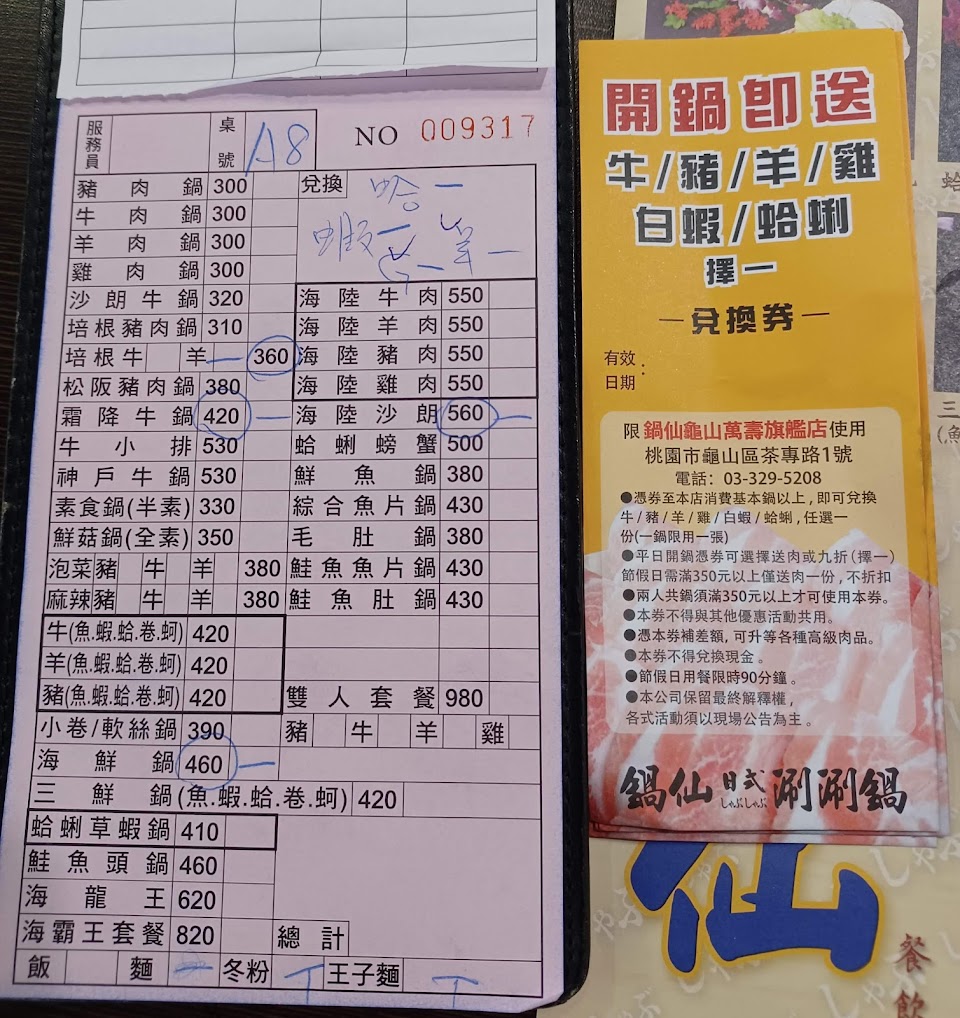 服務員 桌號 A8 NO 009317
豬肉鍋 300 兌換 哈一
牛肉鍋 300
羊肉鍋 300 蝦一 羊一
雞肉鍋 300
沙朗牛鍋 320 海陸牛肉 550
培根豬肉鍋 310 海陸羊肉 550
培根牛 羊 一 360 海陸豬肉 550
松阪豬肉鍋 380 海陸雞肉 550
霜降牛鍋 420 一 海陸沙朗 560 一
牛小排 530 蛤蜊螃蟹 500
神戶牛鍋 530 鮮魚鍋 380
素食鍋(半素) 330 綜合魚片鍋 430
鮮菇鍋(全素) 350 毛肚鍋 380
泡菜豬 牛 羊 380 鮭魚魚片鍋 430
麻辣豬 牛 羊 380 鮭魚肚鍋 430
牛(魚.蝦.蛤.卷.蚵) 420
羊(魚.蝦.蛤.卷.蚵) 420
豬(魚.蝦.蛤.卷.蚵) 420 雙人套餐 980
小卷/軟絲鍋 390 豬 牛 羊 雞
海鮮鍋 460 一
三鮮鍋(魚.蝦.蛤.卷.蚵) 420
蛤蜊草蝦鍋 410
鮭魚頭鍋 460
海龍王 620
海霸王套餐 820 總計
飯 麵 冬粉 丅 王子麵 丅
開鍋即送
牛/豬/羊/雞
白蝦/蛤蜊
擇一
—兌換券—
有效日期：
限 鍋仙龜山萬壽旗艦店使用
桃園市龜山區茶專路1號
電話：03-329-5208
●憑券至本店消費基本鍋以上，即可兌換
牛/豬/羊/雞/白蝦/蛤蜊，任選一
份(一鍋限用一張)
●平日開鍋憑券可選擇送肉或九折(擇一)
節假日需滿350元以上僅送肉一份，不折扣
●兩人共鍋須滿350元以上才可使用本券。
●本券不得與其他優惠活動共用。
●憑本券補差額，可升等各種高級肉品。
●本券不得兌換現金。
●節假日用餐限時90分鐘。
●本公司保留最終解釋權，
各式活動須以現場公告為主。
鍋仙 日式 しゃぶしゃぶ 涮涮鍋
仙
餐飲